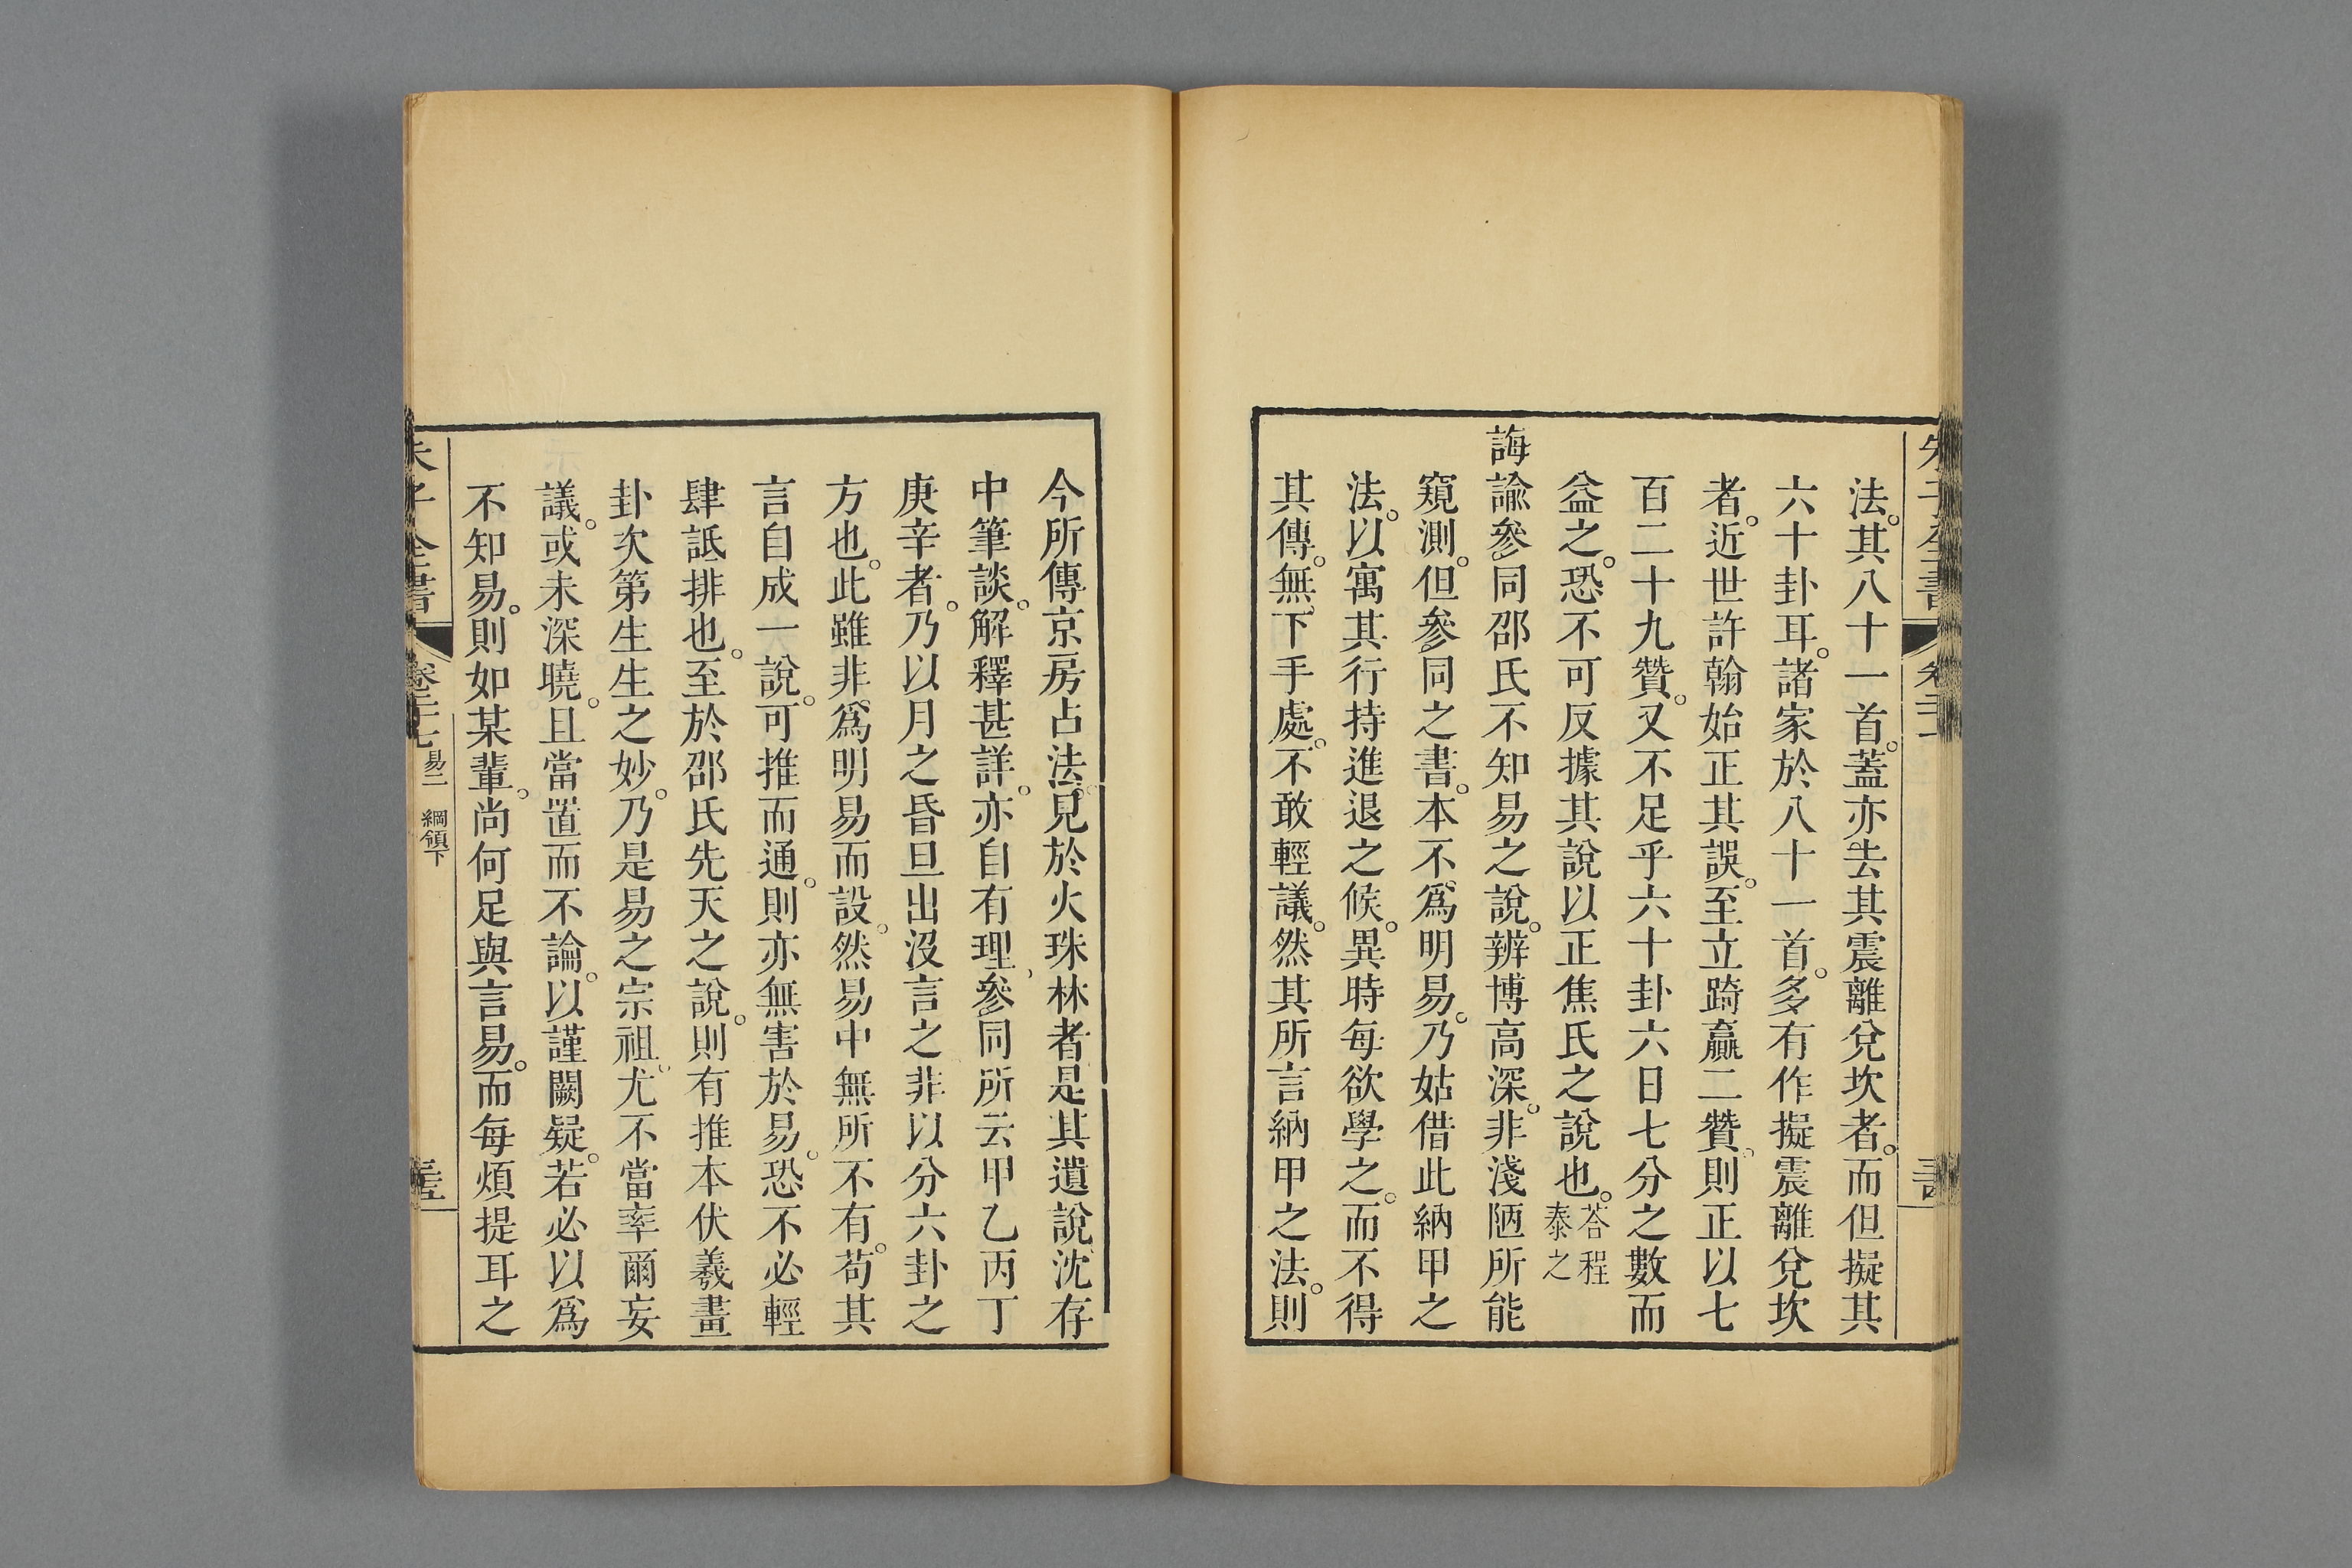 法。其八十一首。蓋亦去其震離兌坎者。而但擬其
六十卦耳。諸家於八十一首。多有作擬震離兌坎
者。近世許翰始正其誤。至立踦贏二贊。則正以七
百二十九贊。又不足乎六十卦六日七分之數而
益之。恐不可反據其說以正焦氏之說也。答程泰之
誨諭參同邵氏不知易之說。辨博高深。非淺陋所能
窺測。但參同之書。本不爲明易。乃姑借此納甲之
法。以寓其行持進退之候。異時每欲學之。而不得
其傳。無下手處。不敢輕議。然其所言納甲之法。則
今所傳京房占法。見於火珠林者是其遺說。沈存
中筆談。解釋甚詳。亦自有理、參同所云甲乙丙丁
庚辛者。乃以月之昏旦出沒言之非以分六卦之
方也。此雖非爲明易而設。然易中無所不有。苟其
言自成一說。可推而通。則亦無害於易。恐不必輕
肆詆排也。至於邵氏先天之說。則有推本伏羲畫
卦次第生生之妙。乃是易之宗祖。尤不當率爾妄
議。或未深曉。且當置而不論。以謹闕疑。若必以爲
不知易。則如某輩。尚何足與言易。而每煩提耳之
朱子全書 卷二十七 易二 綱領下